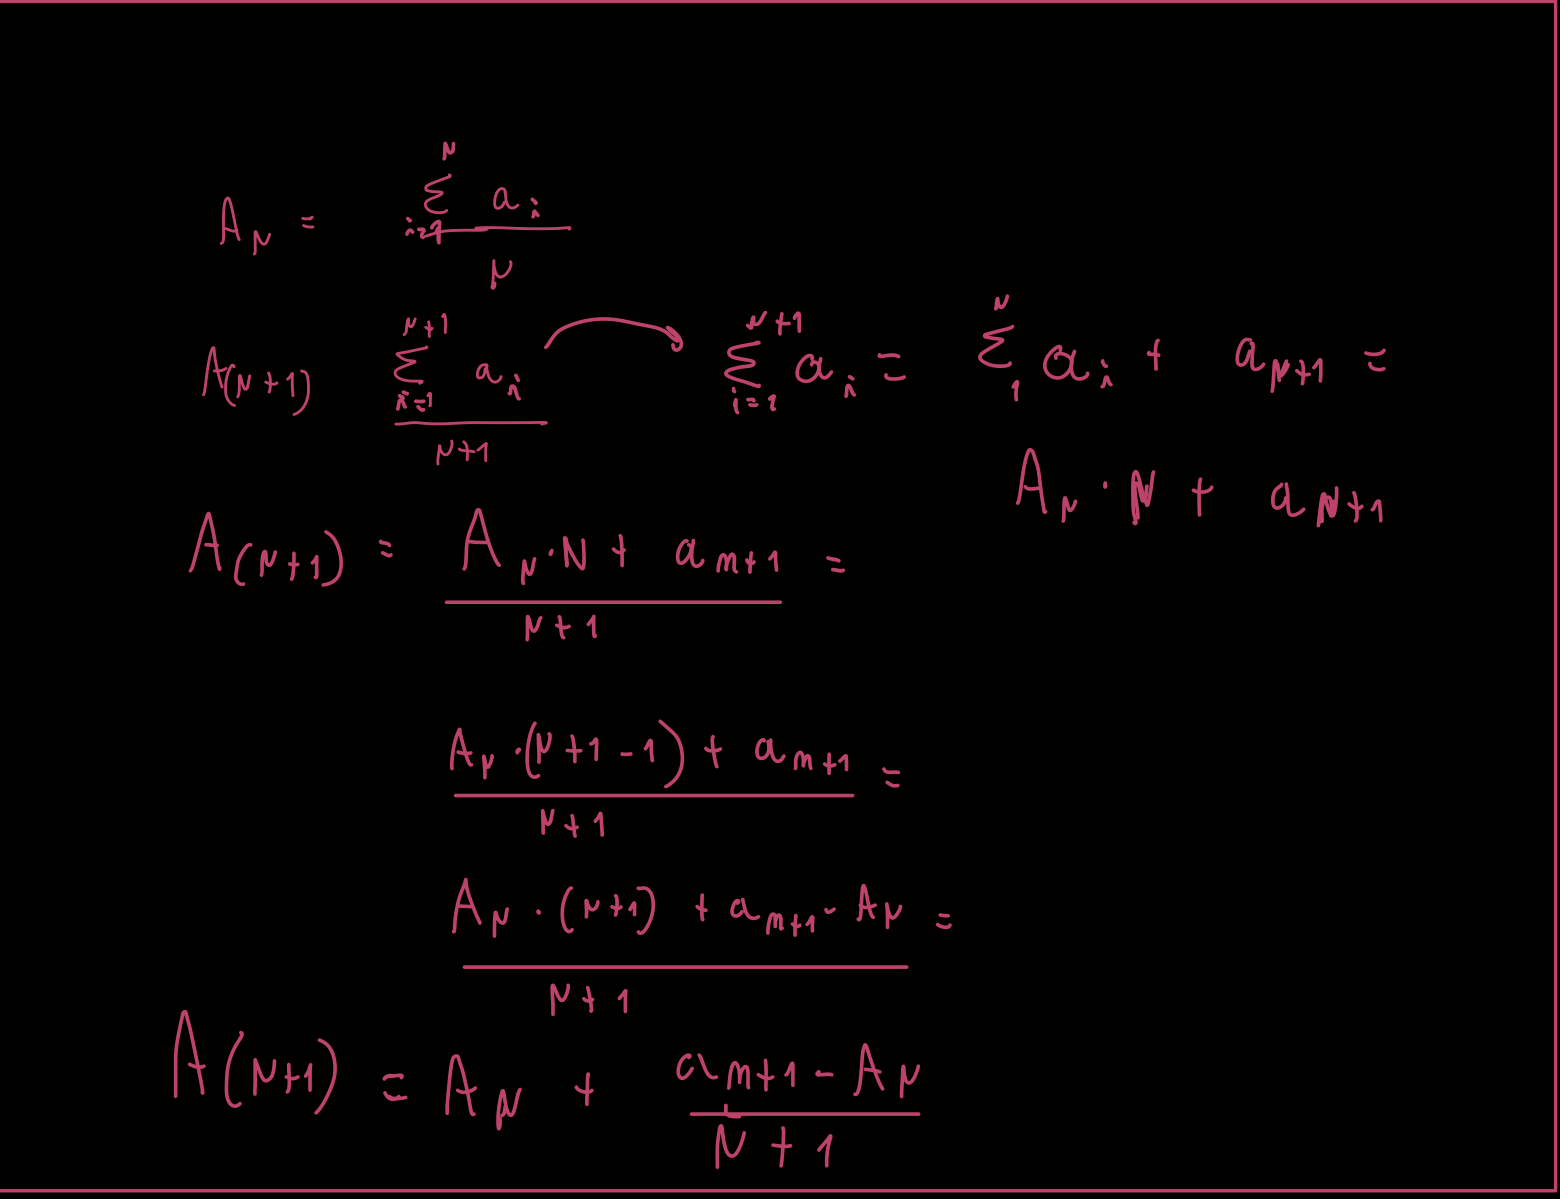 A_N = \frac{\sum_{i=1}^{N} a_i}{N}
A_{(N+1)} \frac{\sum_{i=1}^{N+1} a_i}{N+1} → \sum_{i=1}^{N+1} a_i = \sum_{1}^{N} a_i + a_{N+1} =
A_N · N + a_{N+1}
A_{(N+1)} = \frac{A_N · N + a_{n+1}}{N+1} =
\frac{A_N · (N+1-1) + a_{n+1}}{N+1} =
\frac{A_N · (N+1) + a_{n+1} - A_N}{N+1} =
A_{(N+1)} = A_N + \frac{a_{n+1} - A_N}{N+1}